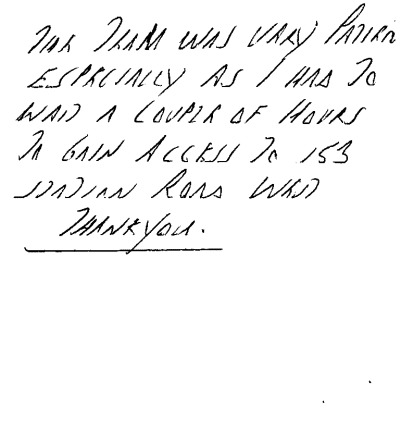 THE TEAM WAS VARY PATIEN
ESPECIALLY AS I HAD TO
WAIT A COUPLE OF HOURS
TO GAIN ACCESS TO 153
STATION ROAD WEST
THANKYOU.